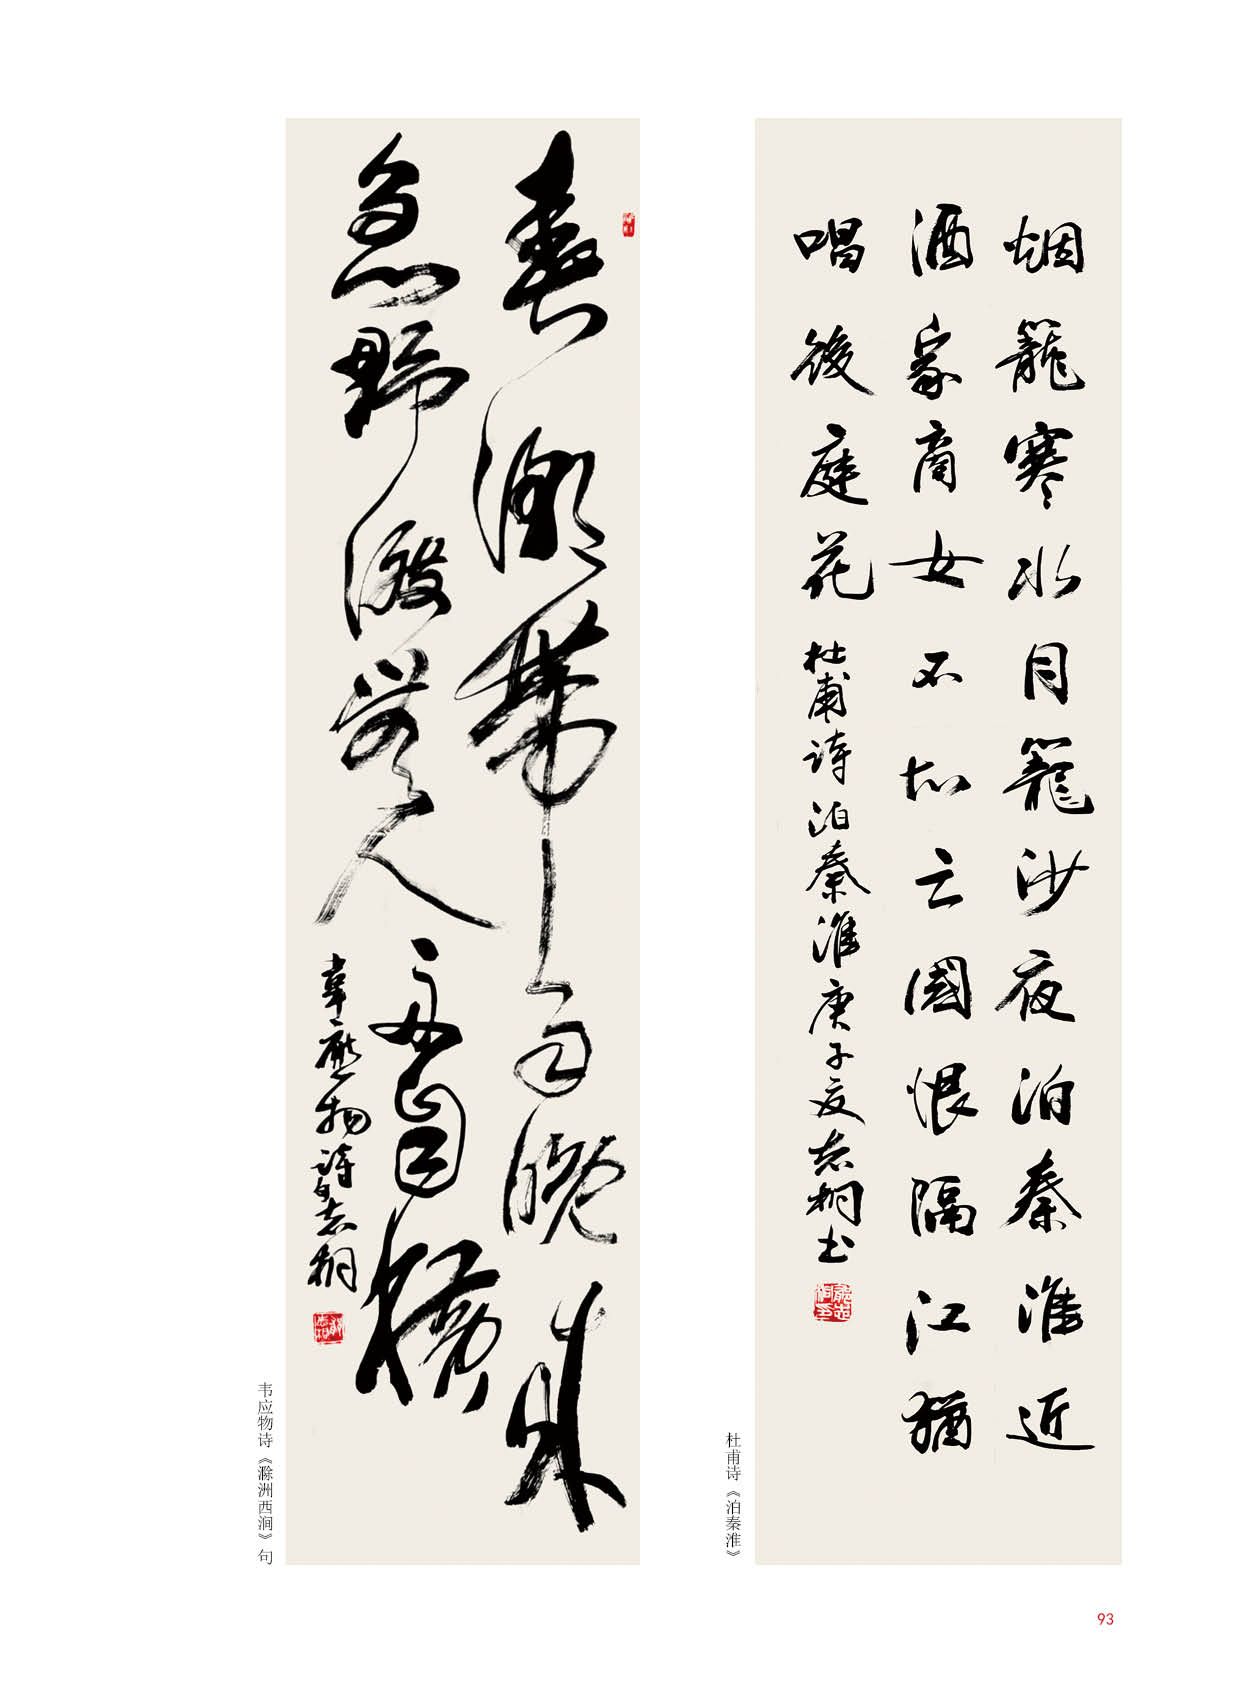 烟籠寒水月籠沙夜泊秦淮近
酒家商女不知亡國恨隔江猶
唱後庭花
杜甫诗泊秦淮庚子夏志桐书
杜甫诗《泊秦淮》
春潮带雨晚来
急野渡無人舟自横
韋應物诗句志桐
韦应物诗《滁洲西涧》句
93